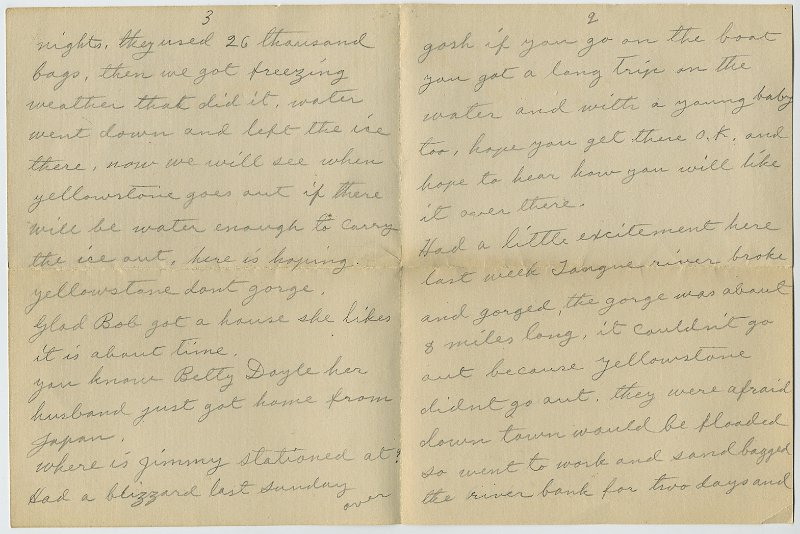 2
gosh if you go on the boat
you got a long trip on the
water and with a young baby
too, hope you get there O.K. and
hope to hear how you will like
it over there.
Had a little excitement here
last week Tongue river broke
and gorged, the gorge was about
8 miles long, it couldn't go
out because yellowstone
didnt go out. they were afraid
down town would be flooded
so went to work and sand bagged
the river bank for two days and
3
nights. they used 26 thousand
bags, then we got freezing
weather that did it. water
went down and left the ice
there, now we will see when
yellowstone goes out if there
will be water enough to carry
the ice out, here is hoping.
yellowstone dont gorge.
Glad Bob got a house she likes
it is about time.
you know Betty Doyle her
husband just got home from
Japan.
where is Jimmy stationed at?
Had a blizzard last sunday
over